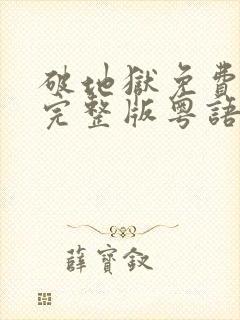 破地獄免費
完整版粵語
薛寶釵